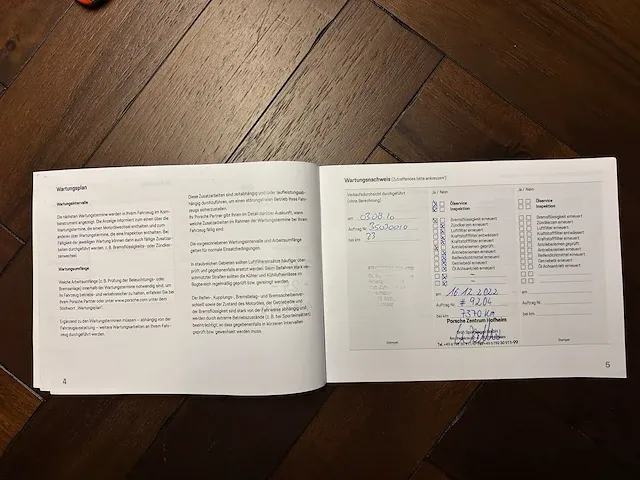 Wartungsplan
Wartungsintervalle
Die nächsten Wartungstermine werden in Ihrem Fahrzeug im Kom-
binstrument angezeigt. Die Anzeige informiert zum einen über die
Wartungstermine, die einen Motorölwechsel enthalten und zum
anderen über Wartungstermine, die eine Inspektion enthalten. Bei
Fälligkeit der jeweiligen Wartung können dann auch fällige Zusatzar-
beiten durchgeführt werden, z. B. Bremsflüssigkeits- oder Zündker-
zenwechsel.
Wartungsumfänge
Welche Arbeitsumfänge (z. B. Prüfung der Beleuchtungs- oder
Bremsanlage) innerhalb der Wartungstermine notwendig sind, um
Ihr Fahrzeug betriebs- und verkehrssicher zu halten, erfahren Sie bei
Ihrem Porsche Partner oder unter www.porsche.com unter dem
Stichwort „Wartungsplan“.
Ergänzend zu den Wartungsterminen müssen – abhängig von der
Fahrzeugausstattung – weitere Wartungsarbeiten an Ihrem Fahr-
zeug durchgeführt werden.
4
Diese Zusatzarbeiten sind zeitabhängig und/oder laufleistungsab-
hängig durchzuführen, um einen störungsfreien Betrieb Ihres Fahr-
zeugs sicherzustellen.
Ihr Porsche Partner gibt Ihnen im Detail darüber Auskunft, wann
welche Zusatzarbeiten im Rahmen der Wartungstermine bei Ihrem
Fahrzeug fällig sind.
Die vorgeschriebenen Wartungsintervalle und Arbeitsumfänge
gelten für normale Einsatzbedingungen.
In staubreichen Gebieten sollten Luftfiltereinsätze häufiger über-
prüft und gegebenenfalls ersetzt werden. Beim Befahren stark ver-
schmutzter Straßen sollten die Kühler und Kühlluftwege im
Bugbereich regelmäßig geprüft bzw. gereinigt werden.
Der Reifen-, Kupplungs-, Bremsbelag- und Bremsscheibenver-
schleiß sowie der Zustand des Motoröles, der Getriebeöle und
der Bremsflüssigkeit sind stark von der Fahrweise abhängig und
werden durch extreme Betriebszustände (z. B. bei Sporteinsätzen)
beeinträchtigt, so dass gegebenenfalls in kürzeren Intervallen
geprüft bzw. gewechselt werden muss.
Wartungsnachweis (Zutreffendes bitte ankreuzen!)
Verkaufsdurchsicht durchgeführt
(ohne Berechnung)
am 03.08.10
Auftrag Nr.
bei km 23
Stempel
Ja / Nein
Ölservice
Inspektion
Bremsflüssigkeit erneuert
Zündkerzen erneuert
Luftfilter erneuert
Kraftstofffilter entwässert
Kraftstofffilter erneuert
Antriebsriemen geprüft
Antriebsriemen erneuert
Partikelfilter erneuert
Getriebeöl erneuert
Öl Achsantrieb erneuert
am 16.12.2022
Auftrag Nr. # 9204
bei km 7370 km
Porsche Zentrum Hofheim
Ja / Nein
Ölservice
Inspektion
Bremsflüssigkeit erneuert
Zündkerzen erneuert
Luftfilter erneuert
Kraftstofffilter entwässert
Kraftstofffilter erneuert
Antriebsriemen geprüft
Antriebsriemen erneuert
Partikelfilter erneuert
Getriebeöl erneuert
Öl Achsantrieb erneuert
am
Auftrag Nr.
bei km
Stempel
5